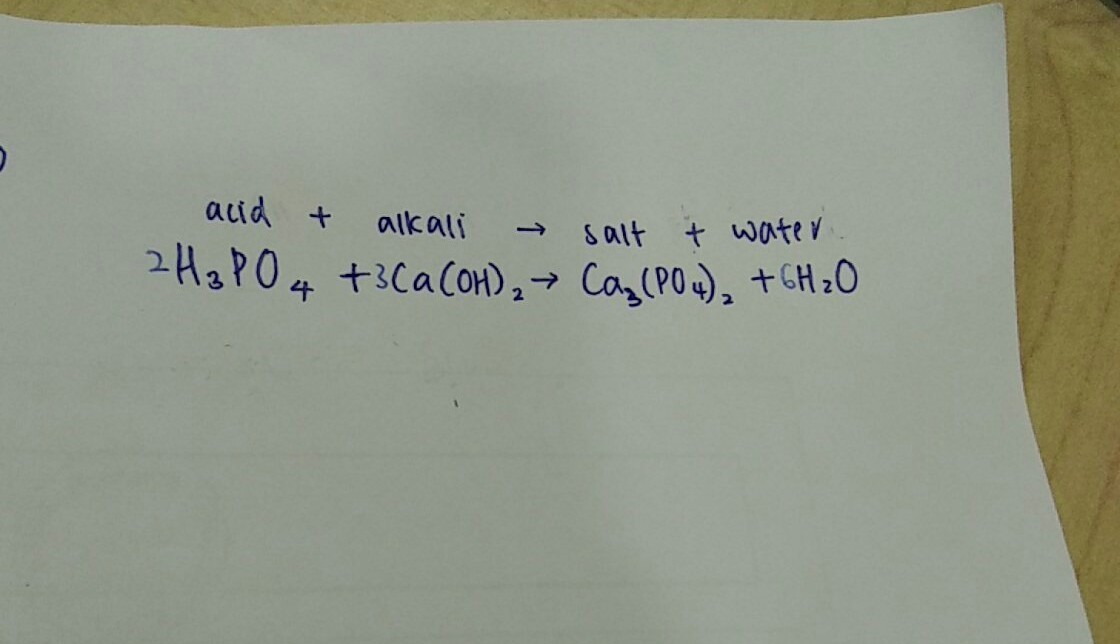 acid + alkali → salt + water
2H₃PO₄ +3Ca(OH)₂→ Ca₃(PO₄)₂ +6H₂O